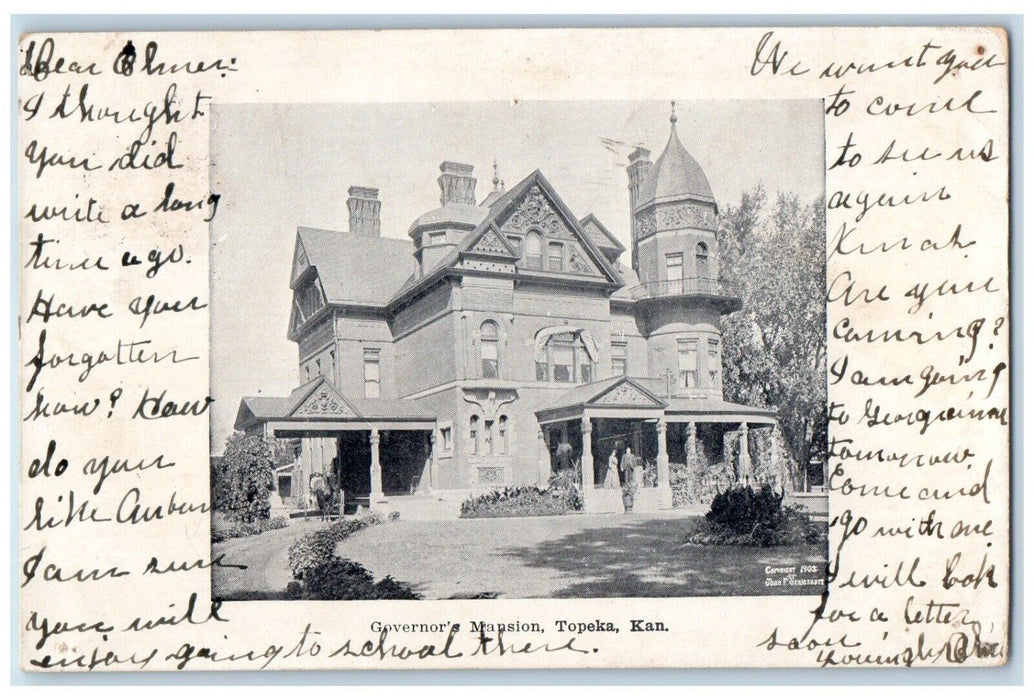 Dear Elmer:
I thought
you did
write a long
time ago.
Have you
forgotten
how? How
do you
like Auburn
I am sure
you will
enjoy going to school there.
We want you
to come
to see us
again
Are you
coming?
I am going
to
tomorrow
Come and
go with me
I will look
for a letter
soon
Copyright 1903
Governor's Mansion, Topeka, Kan.